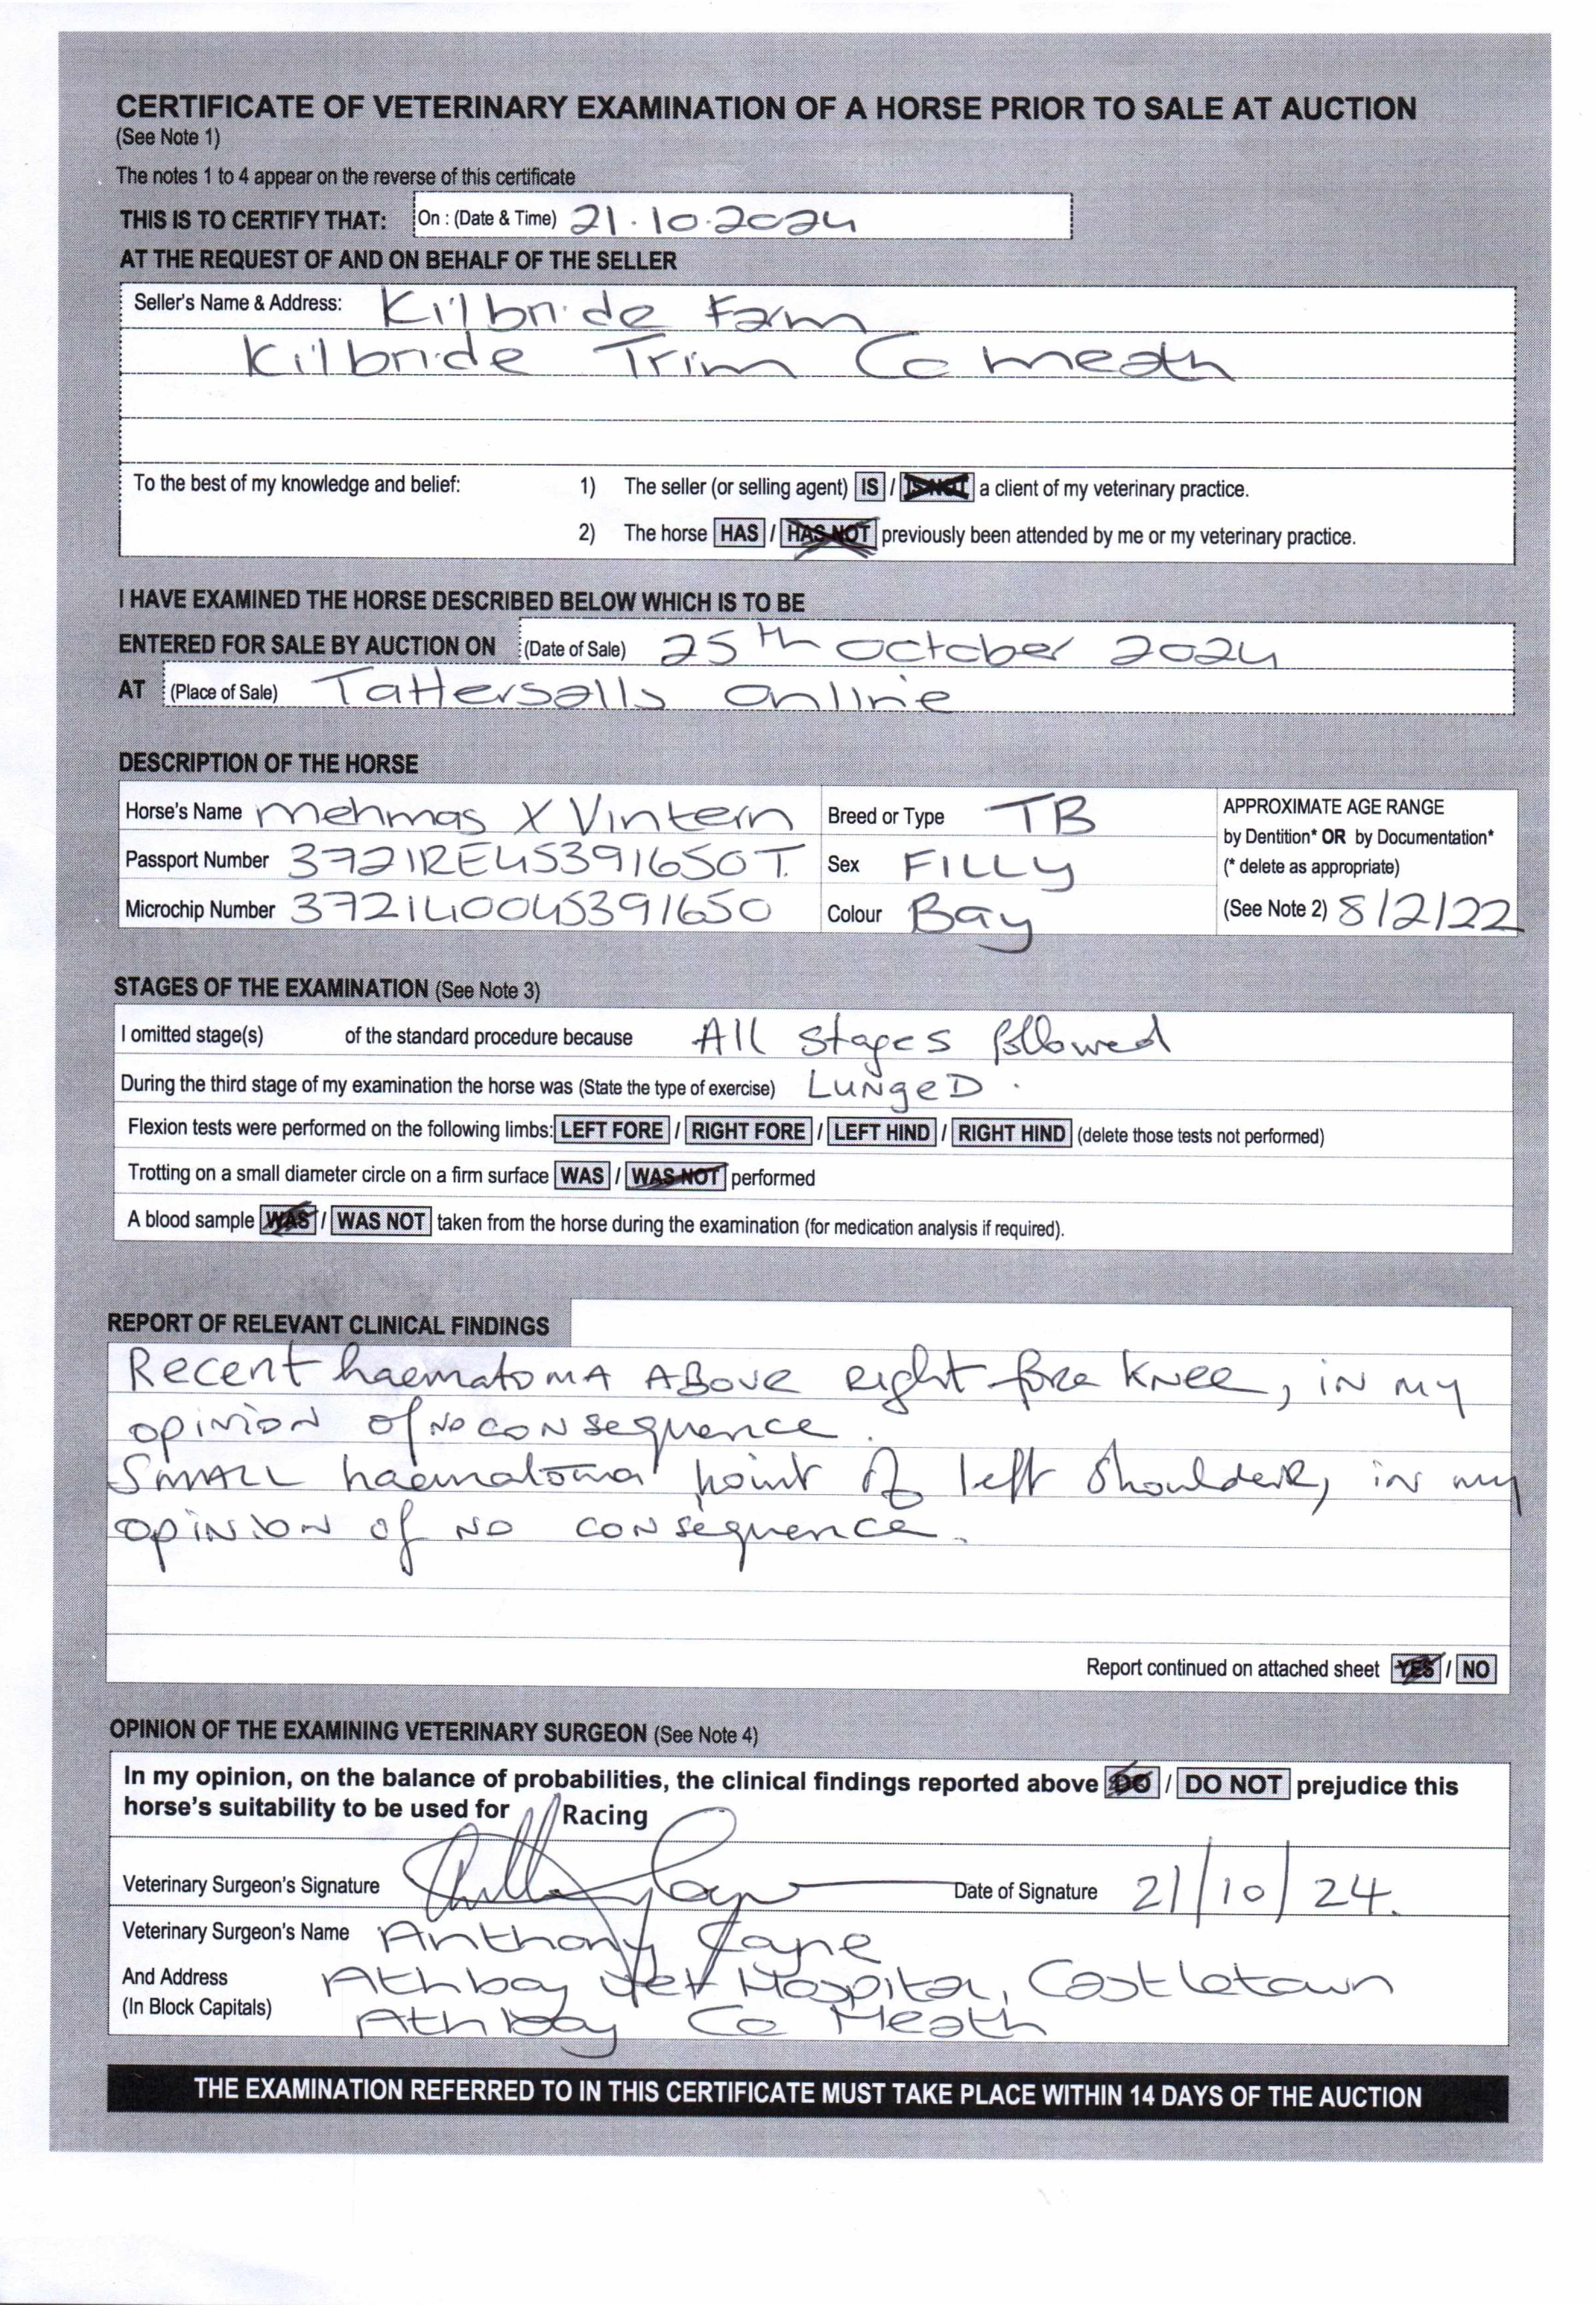 CERTIFICATE OF VETERINARY EXAMINATION OF A HORSE PRIOR TO SALE AT AUCTION
(See Note 1)
The notes 1 to 4 appear on the reverse of this certificate
THIS IS TO CERTIFY THAT: On : (Date & Time) 21.10.2024
AT THE REQUEST OF AND ON BEHALF OF THE SELLER
Seller's Name & Address: Kilbride Farm
Kilbride Trim Co Meath
To the best of my knowledge and belief: 1) The seller (or selling agent) IS / IS NOT a client of my veterinary practice.
2) The horse HAS / HAS NOT previously been attended by me or my veterinary practice.
I HAVE EXAMINED THE HORSE DESCRIBED BELOW WHICH IS TO BE
ENTERED FOR SALE BY AUCTION ON (Date of Sale) 25th October 2024
AT (Place of Sale) Tattersalls Online
DESCRIPTION OF THE HORSE
Horse's Name Mehmas X Vintern Breed or Type TB APPROXIMATE AGE RANGE
by Dentition* OR by Documentation*
Passport Number 372IRE45391650T. Sex FILLY (* delete as appropriate)
Microchip Number 372140045391650 Colour Bay (See Note 2) 8/2/22
STAGES OF THE EXAMINATION (See Note 3)
I omitted stage(s) of the standard procedure because All stages followed
During the third stage of my examination the horse was (State the type of exercise) LUNGED.
Flexion tests were performed on the following limbs: LEFT FORE / RIGHT FORE / LEFT HIND / RIGHT HIND (delete those tests not performed)
Trotting on a small diameter circle on a firm surface WAS / WAS NOT performed
A blood sample WAS / WAS NOT taken from the horse during the examination (for medication analysis if required).
REPORT OF RELEVANT CLINICAL FINDINGS
Recent haematoma above right fore knee, in my
opinion of no consequence.
Small haematoma point of left shoulder, in my
opinion of no consequence.
Report continued on attached sheet YES / NO
OPINION OF THE EXAMINING VETERINARY SURGEON (See Note 4)
In my opinion, on the balance of probabilities, the clinical findings reported above DO / DO NOT prejudice this
horse's suitability to be used for Racing
Veterinary Surgeon's Signature Date of Signature 21/10/24.
Veterinary Surgeon's Name Anthony
And Address Athboy Vet Hospital, Castletown
(In Block Capitals) Athboy Co Meath
THE EXAMINATION REFERRED TO IN THIS CERTIFICATE MUST TAKE PLACE WITHIN 14 DAYS OF THE AUCTION